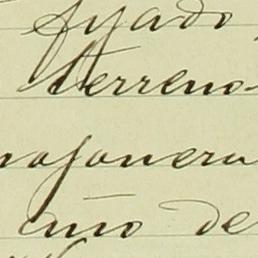 fijado
terreno
mojonera
año de